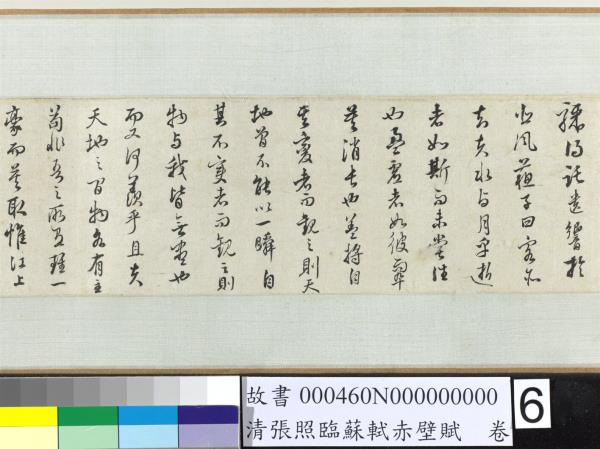 驟得託遺響於
悲風蘇子曰客亦
知夫水與月乎逝
者如斯而未嘗往
也盈虛者如彼而卒
莫消長也蓋將自
其變者而觀之則天
地曾不能以一瞬自
其不變者而觀之則
物與我皆無盡也
而又何羨乎且夫
天地之間物各有主
苟非吾之所有雖一
豪而莫取惟江上
故書 000460N000000000
清張照臨蘇軾赤壁賦 卷
6